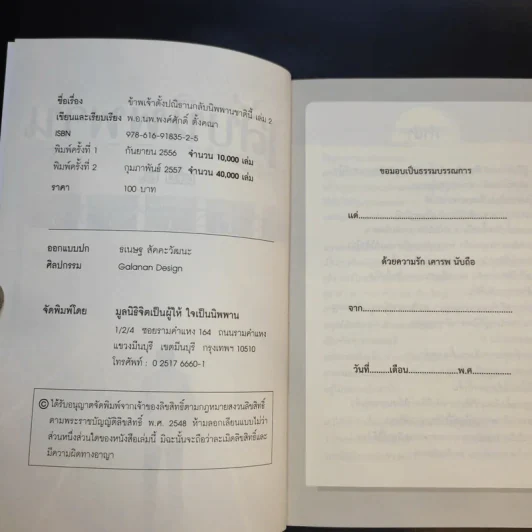 ชื่อเรื่อง ข้าพเจ้าตั้งปณิธานกลับนิพพานชาตินี้ เล่ม 2
เขียนและเรียบเรียง พ.อ.นพ.พงศ์ศักดิ์ ตั้งคณา
ISBN 978-616-91835-2-5
พิมพ์ครั้งที่ 1 กันยายน 2556 จำนวน 10,000 เล่ม
พิมพ์ครั้งที่ 2 กุมภาพันธ์ 2557 จำนวน 40,000 เล่ม
ราคา 100 บาท
ออกแบบปก ธเนษฐ ลัคคะวัฒนะ
ศิลปกรรม Galanan Design
จัดพิมพ์โดย มูลนิธิจิตเป็นผู้ให้ ใจเป็นนิพพาน
1/2/4 ซอยรามคำแหง 164 ถนนรามคำแหง
แขวงมีนบุรี เขตมีนบุรี กรุงเทพฯ 10510
โทรศัพท์ : 0 2517 6660-1
© ได้รับอนุญาตจัดพิมพ์จากเจ้าของลิขสิทธิ์ตามกฎหมายสงวนลิขสิทธิ์
ตามพระราชบัญญัติลิขสิทธิ์ พ.ศ. 2548 ห้ามลอกเลียนแบบไม่ว่า
ส่วนหนึ่งส่วนใดของหนังสือเล่มนี้ มิฉะนั้นจะถือว่าละเมิดลิขสิทธิ์และ
มีความผิดทางอาญา
ขอมอบเป็นธรรมบรรณาการ
แด่..................................................
ด้วยความรัก เคารพ นับถือ
จาก..................................................
วันที่........เดือน..................พ.ศ...............